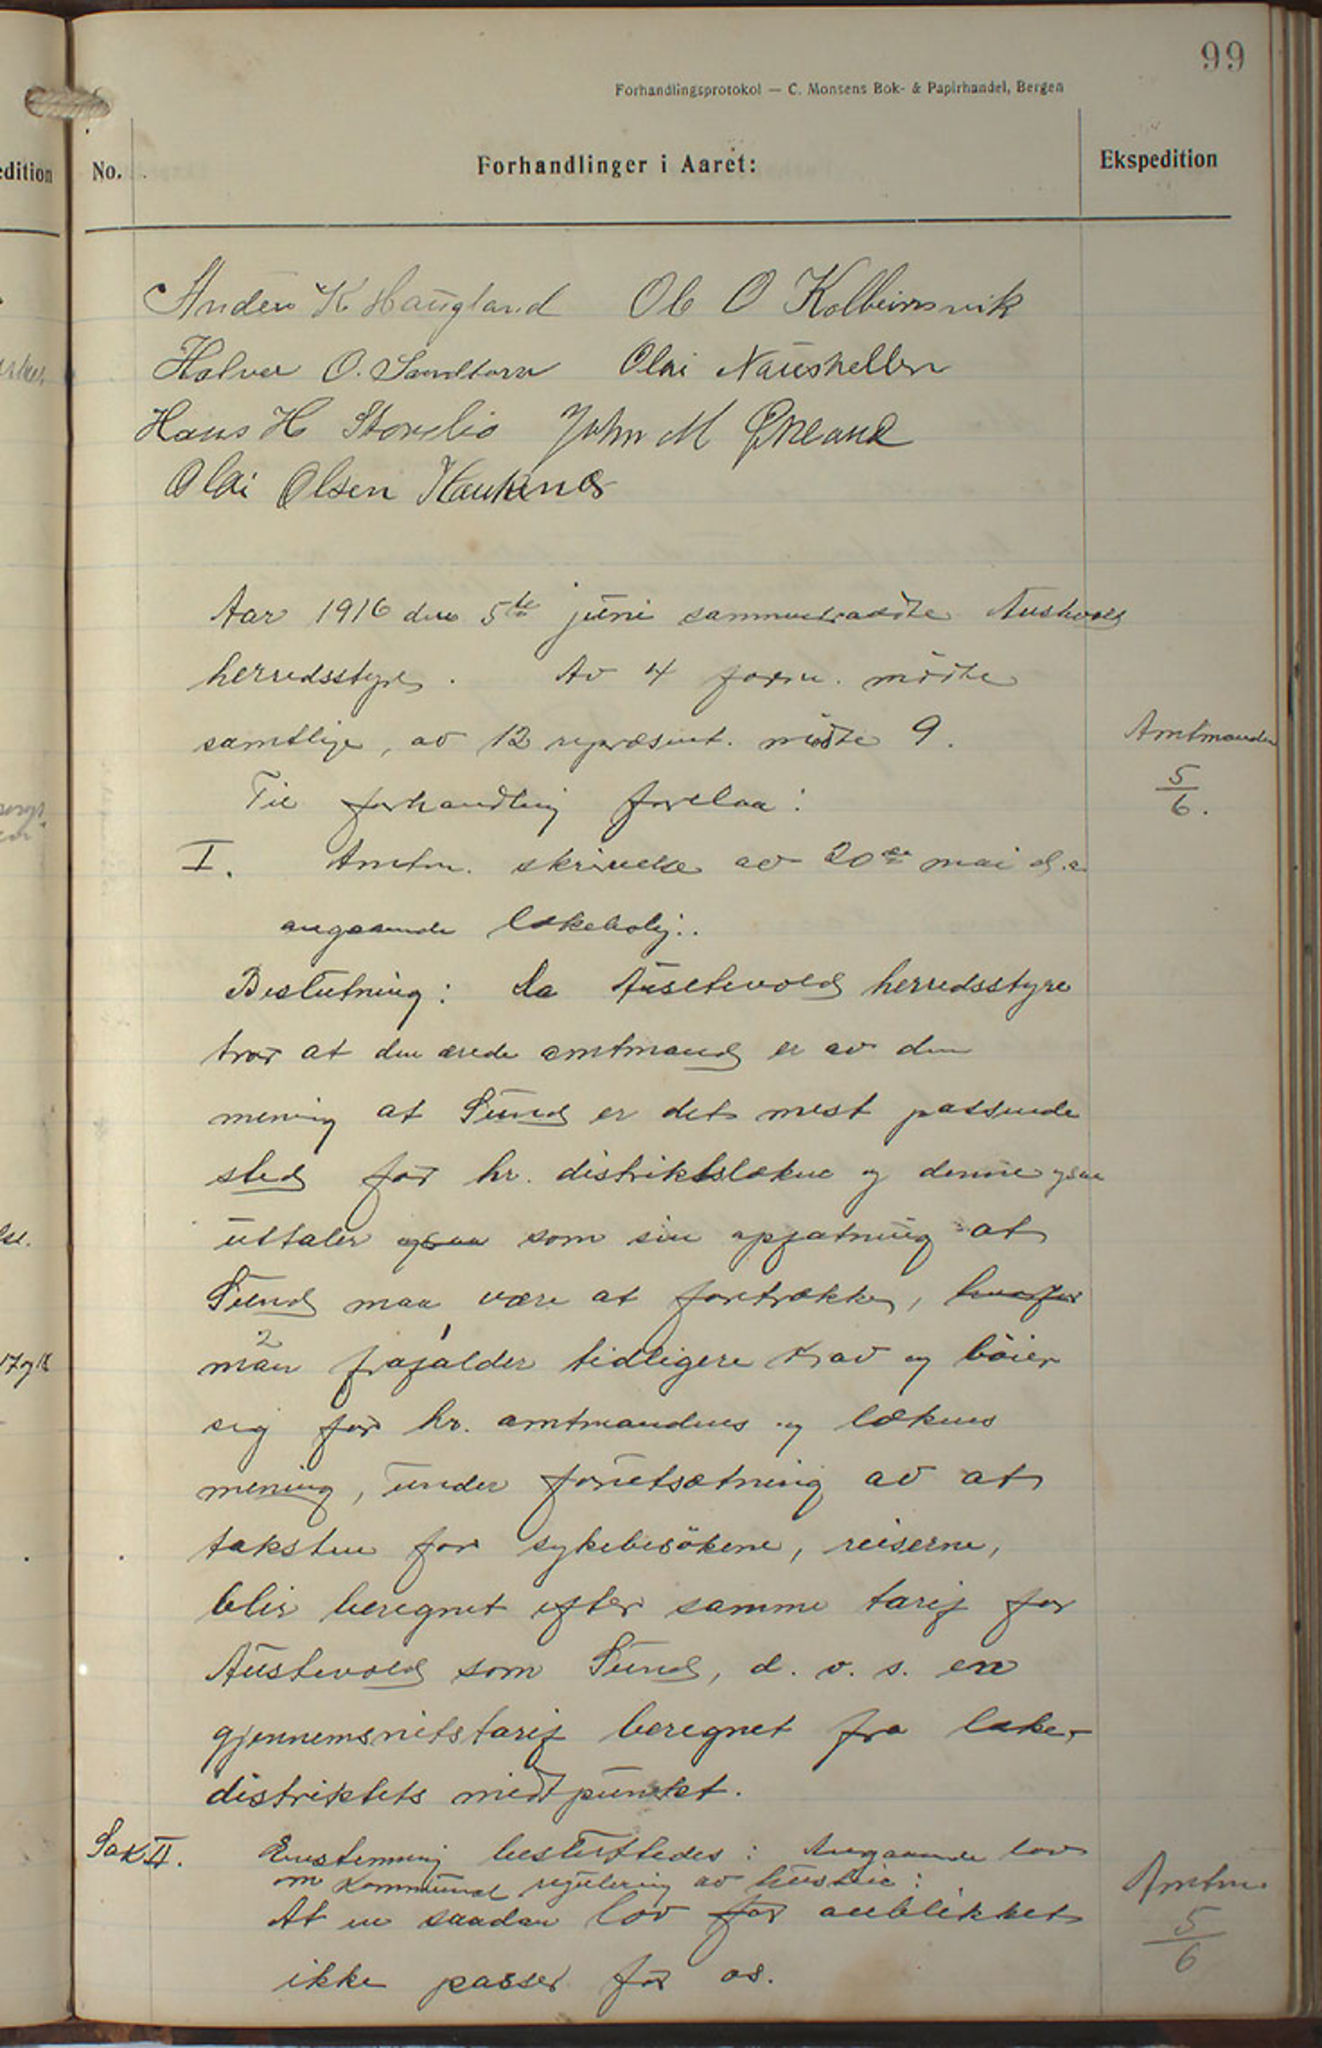 99
Forhandlingsprotokol — C. Monsens Bok- & Papirhandel, Bergen
edition
No.
Forhandlinger i Aaret:
Ekspedition
Anders K Haugland Ole O Kolbeinsvik
Halvor O. Sandtorv Olai Naushellen
Hans H Storebø John M Økland
Olai Olsen Haukenes
Aar 1916 den 5te juni sammentraadte Austevold
herredsstyre. Av 4 form. møtte
samtlige, av 12 repræsent. møtte 9.
Amtmanden
5/6.
Til forhandling forelaa:
I. Amtm. skrivelse av 20de mai d.a.
angaaende lækebolig.
Beslutning: Da Austevold herredsstyre
tror at den ærede amtmand er av den
mening at Sund er det mest passende
sted for hr. distriktslækne og denne ogsaa
uttaler ogsaa som sin opfatning at
Sund maa være at foretrække, hvorfor
man frafalder tidligere krav og bøier
sig for hr. amtmandens og læknes
mening, under forutsætning av at
taksten for sykebesøkene, reiserne,
blir beregnet efter samme tarif for
Austevold som Sund, d. v. s. en
gjennemsnitstarif beregnet fra læke-
distriktets midtpunkt.
Sak II. Enstemmig besluttedes: Angaaende lov
om kommunal regulering av husleie:
At en saadan lov for øieblikket
ikke passer for os.
Amtm.
5/6
17 og 18